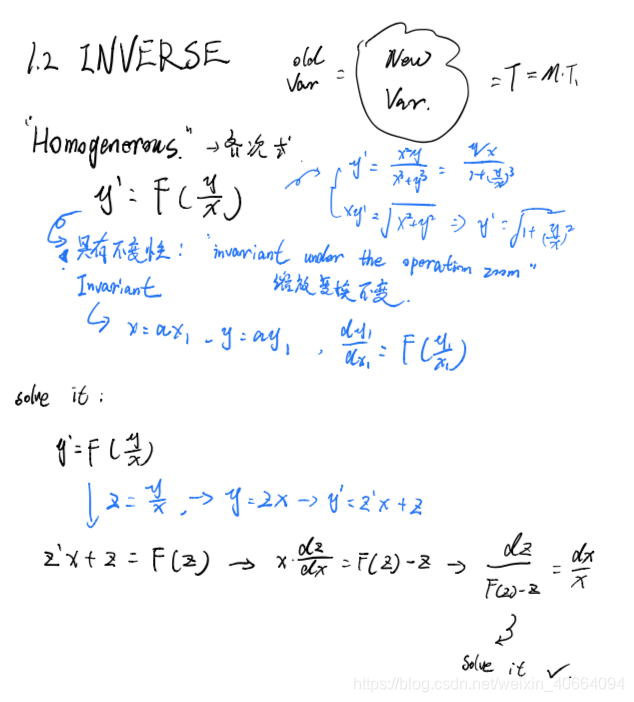 1.2 INVERSE
old Var = New Var. = T = M·T₁
"Homogenerous." → 各次式
y' = F(y/x)
y' = x²y/(x³+y³) = (y/x)/(1+(y/x)³)
xy' = √(x²+y²) ⇒ y' = √(1+(y/x)²)
具有不变性: "invariant under the operation zoom"
Invariant 缩放变换不变.
↳ x=ax₁ - y=ay₁ , dy₁/dx₁ = F(y₁/x₁)
solve it :
y'=F(y/x)
↓ z = y/x , → y=zx → y'=z'x+z
z'x+z = F(z) → x·dz/dx = F(z)-z → dz/(F(z)-z) = dx/x
solve it ✓.
https://blog.csdn.net/weixin_40664094